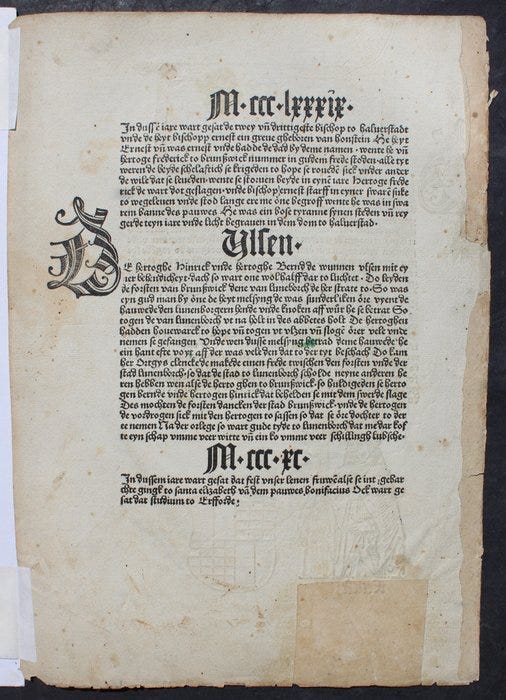 M·ccc·lxxxix·
In dussē iare wart gesat de twey vn̄ druttigeste bischop to haluerstadt
vnde de heyt bischopp ernest ein greue gheboren van honstein He heyt
Ernest vn̄ was ernest vnde hadde de dad by deme namen · wente he vn̄
hertoge frederick to brunßwick nummer in gudem frede stoden · alle tyt
weren de beyde schelaftich se krigeden to hope se rouedē sick vnder ander
de wile dat se leueden · wente se storuen beyde in eynē iare Hertoge frede
rick de wart dot geslagen · vnde bischop ernest starff in eyner swarē suke
to wegeleuen vnde stod lange ere me ōne begroff wente he was in swa
rem banne des pauwes He was ein bose tyranne synen steden vn̄ rey
gerde teyn iare vnde licht begrauen in dēm dom to haluerstad·
Ylsen·
DE hertoghe Hinrick vnde hertoghe Bernd de wunnen vlsen mit ey
ner behendicheyt · dach so wart one wol halff dar to luchtet · Do leyden
de forsten van brunßwick dene van luneborch de her strate to · So was
eyn gud man by ōne de heyt melsyng de was sunderliken ōre vyent de
hauwede den lunenborgern hende vnde knoken aff wūr he se betrat So
togen de van lunenborch vt na holt in des abbetes holt De hertogheu
hadden houewarck to hope vn̄ togen vt vlzen vn̄ slogē ōrer vele vnde
nemen se gefangen Unde wen dusse melsyng betrad deme hauwede he
ein hant efte voyt aff der was vele den dat to der tyt beschach Do kam
her Ortgys clencke de makede einen frede twischen den forsten vnde der
stad lunenborch · so dat de stad to lunenborch scholde neyne anderen he
ren hebben wen alse de herto ghen to brunßwick · so huldigeden se herto
gen bernde vnde hertogen hinrick dat behelden se mit dem swerde slage
Des mochten de forsten dancken der stad brunßwick · vnde de hertogen
de vordrogen sick mit den hertogen to sassen so dat se ōre dochter to der
te nemen Na der orloge so wart gude tyde to lunenborch dat me dar kof
te eyn schap vmme veer witte vn̄ ein ko vmme veer schillingh lubsche·
M·ccc·xc·
In dussem iare wart gesat dat fest vnser leuen fruwē alse se int gebar
chte gingk to santa elizabeth vā dem pauwes bonifacius Ock wart ge
sat dat studium to Erfforde: